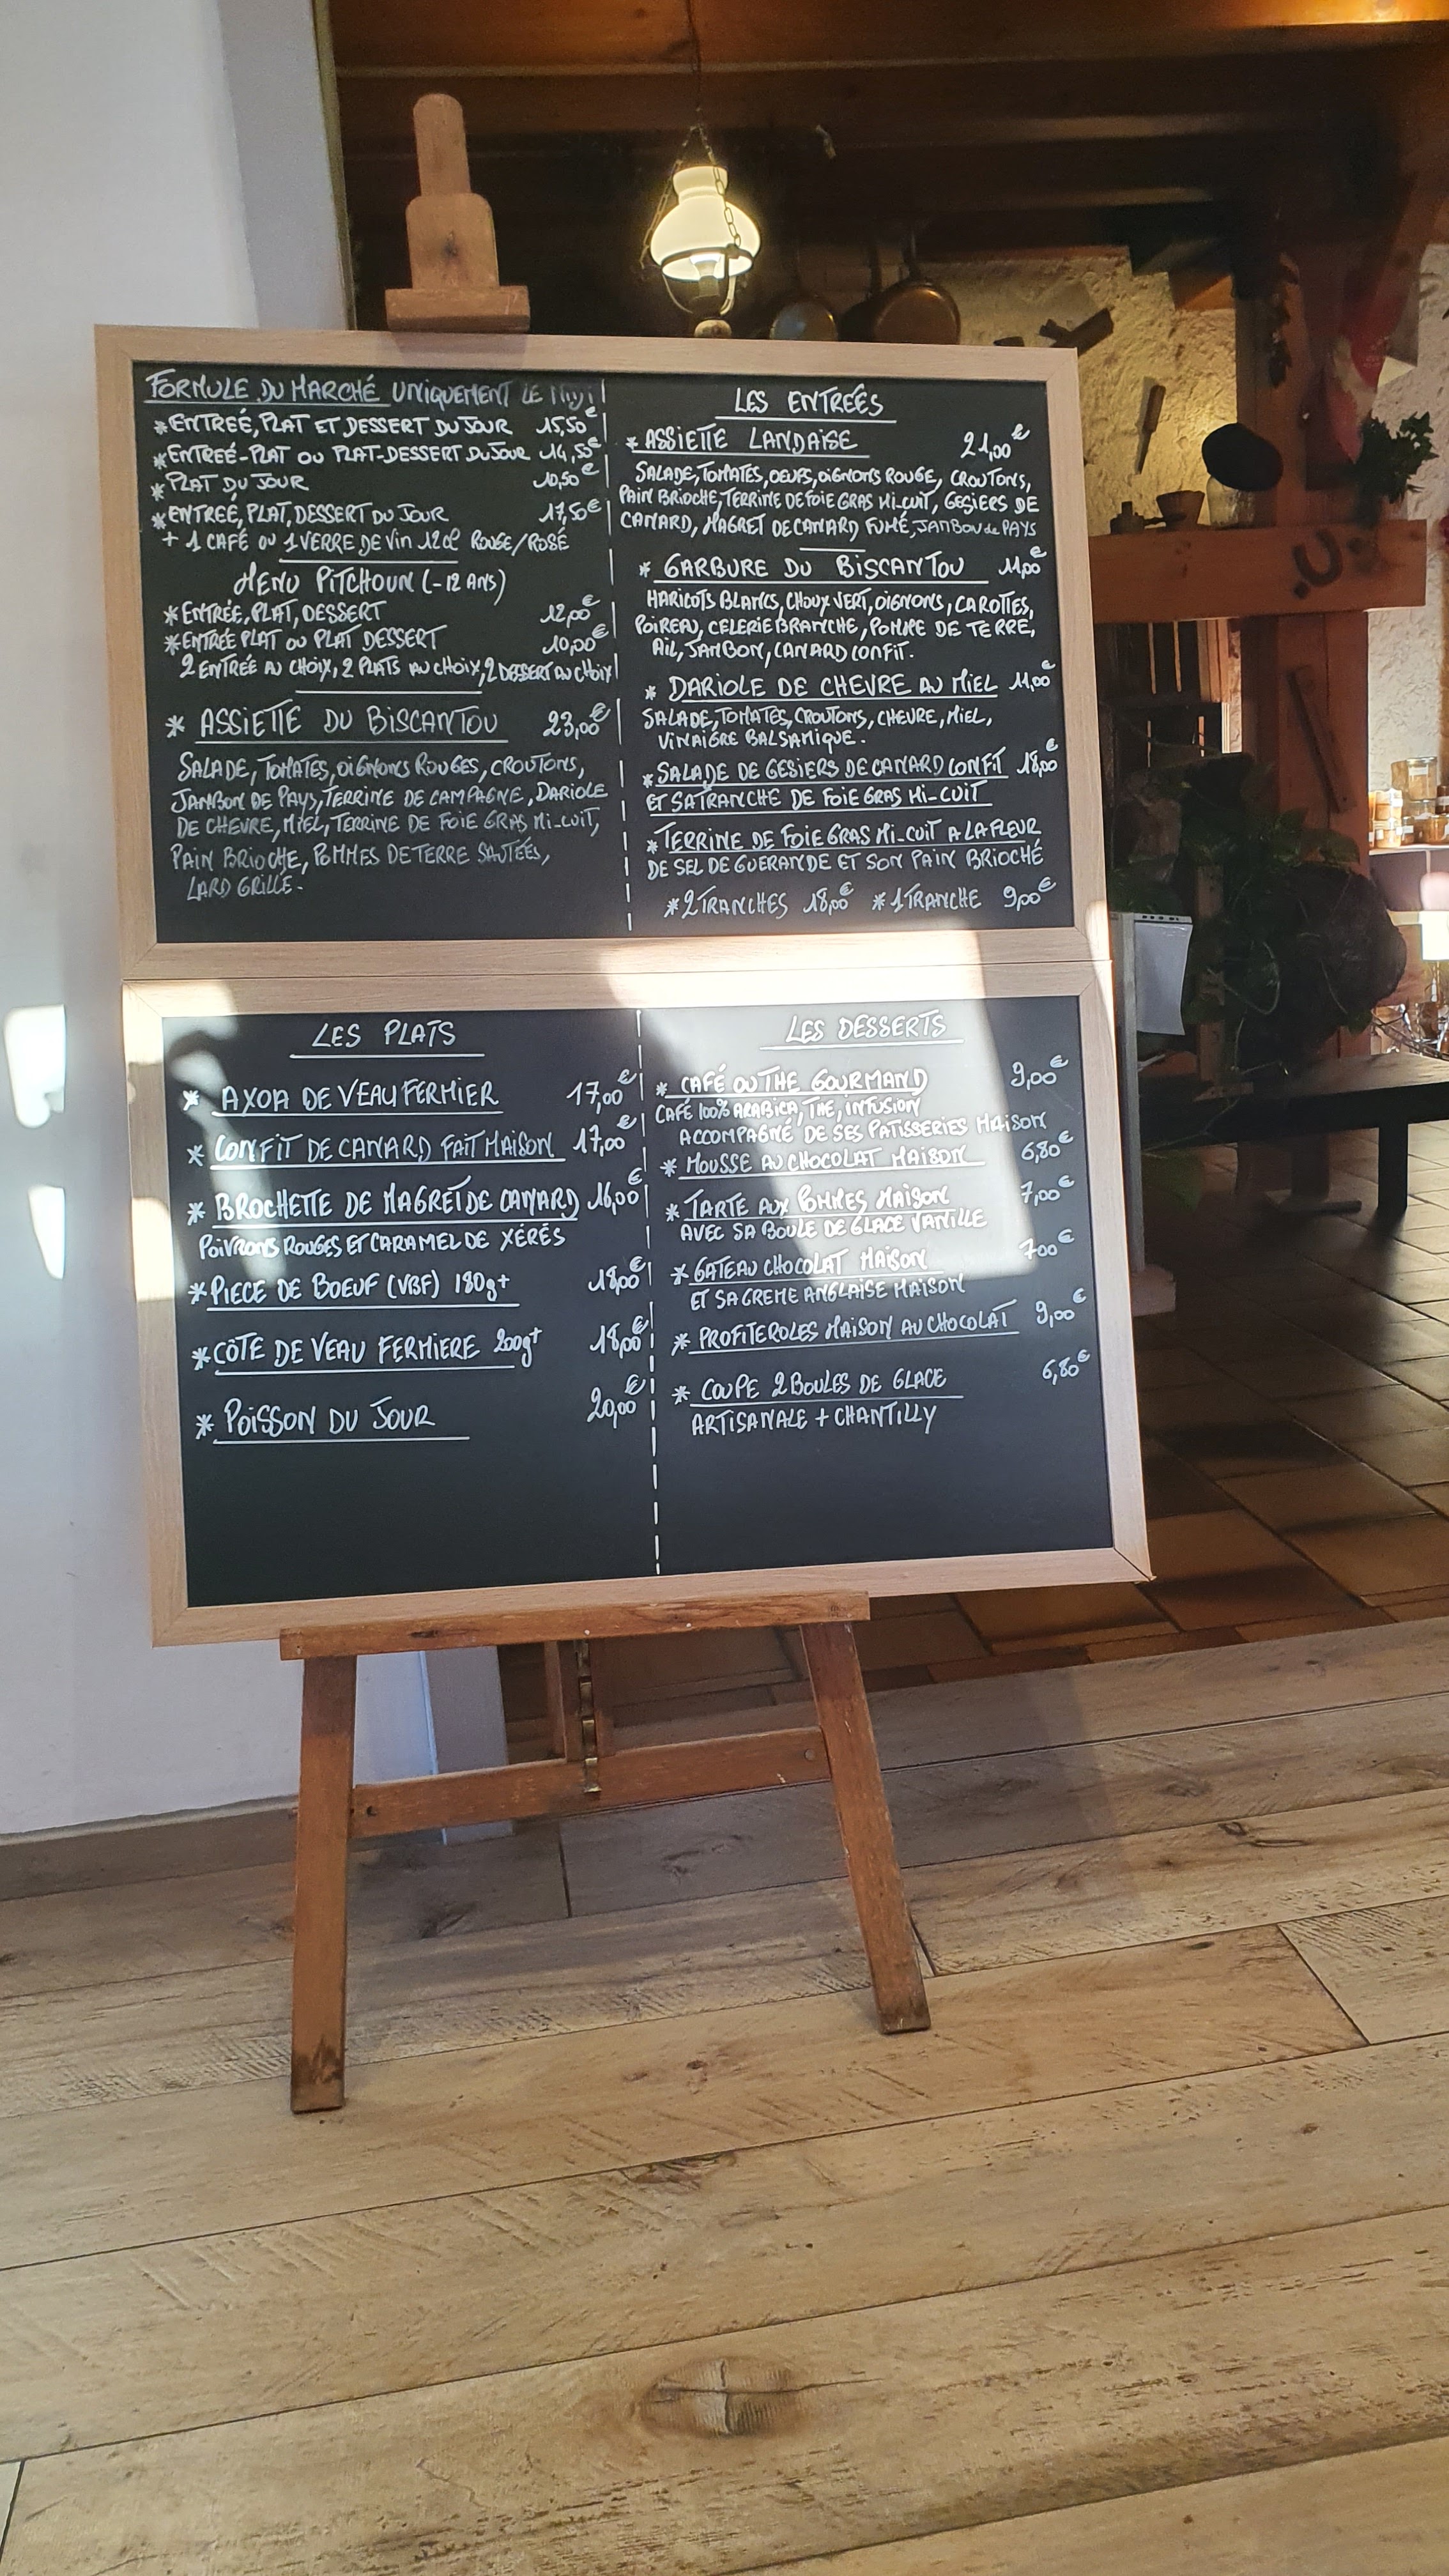 FORMULE DU MARCHÉ UNIQUEMENT LE MIDI
*ENTREÉ, PLAT ET DESSERT DU JOUR 15,50€
*ENTREÉ-PLAT OU PLAT-DESSERT DU JOUR 14,50€
*PLAT DU JOUR 10,50€
*ENTREÉ, PLAT, DESSERT DU JOUR 17,50€
+ 1 CAFÉ OU 1 VERRE DE VIN 12cl ROUGE/ROSÉ
MENU PITCHOUN (-12 ANS)
*ENTRÉE, PLAT, DESSERT 12,00€
*ENTRÉE PLAT OU PLAT DESSERT 10,00€
2 ENTRÉE AU CHOIX, 2 PLATS AU CHOIX, 2 DESSERT AU CHOIX
* ASSIETTE DU BISCANTOU 23,00€
SALADE, TOMATES, OIGNONS ROUGES, CROUTONS,
JAMBON DE PAYS, TERRINE DE CAMPAGNE, DARIOLE
DE CHEVRE, MIEL, TERRINE DE FOIE GRAS MI-CUIT,
PAIN BRIOCHE, POMMES DE TERRE SAUTÉES,
LARD GRILLE.
LES ENTREÉS
* ASSIETTE LANDAISE 21,00€
SALADE, TOMATES, OEUFS, OIGNONS ROUGE, CROUTONS,
PAIN BRIOCHE, TERRINE DE FOIE GRAS MI-CUIT, GESIERS DE
CANARD, MAGRET DE CANARD FUMÉ, JAMBON de PAYS
* GARBURE DU BISCANTOU 11,00€
HARICOTS BLANCS, CHOUX VERT, OIGNONS, CAROTTES,
POIREAU, CELERIE BRANCHE, POMME DE TERRE,
AIL, JAMBON, CANARD CONFIT.
* DARIOLE DE CHEVRE AU MIEL 11,00€
SALADE, TOMATES, CROUTONS, CHEVRE, MIEL,
VINAIGRE BALSAMIQUE.
*SALADE DE GESIERS DE CANARD CONFIT 18,00€
ET SA TRANCHE DE FOIE GRAS MI-CUIT
*TERRINE DE FOIE GRAS MI-CUIT A LA FLEUR
DE SEL DE GUERANDE ET SON PAIN BRIOCHÉ
*2 TRANCHES 18,00€ *1 TRANCHE 9,00€
LES PLATS
* AXOA DE VEAU FERMIER 17,00€
* CONFIT DE CANARD FAIT MAISON 17,00€
* BROCHETTE DE MAGRET DE CANARD 16,00€
POIVRONS ROUGES ET CARAMEL DE XÉRÉS
*PIECE DE BOEUF (VBF) 180g+ 18,00€
*CÔTE DE VEAU FERMIERE 200g+ 18,00€
* POISSON DU JOUR 20,00€
LES DESSERTS
* CAFÉ OU THE GOURMAND 9,00€
CAFÉ 100% ARABICA, THE, INFUSION
ACCOMPAGNÉ DE SES PATISSERIES MAISON
* MOUSSE AU CHOCOLAT MAISON 6,80€
* TARTE AUX POMMES MAISON 7,00€
AVEC SA BOULE DE GLACE VANILLE
* GATEAU CHOCOLAT MAISON 7,00€
ET SA CREME ANGLAISE MAISON
* PROFITEROLES MAISON AU CHOCOLAT 9,00€
* COUPE 2 BOULES DE GLACE 6,80€
ARTISANALE + CHANTILLY